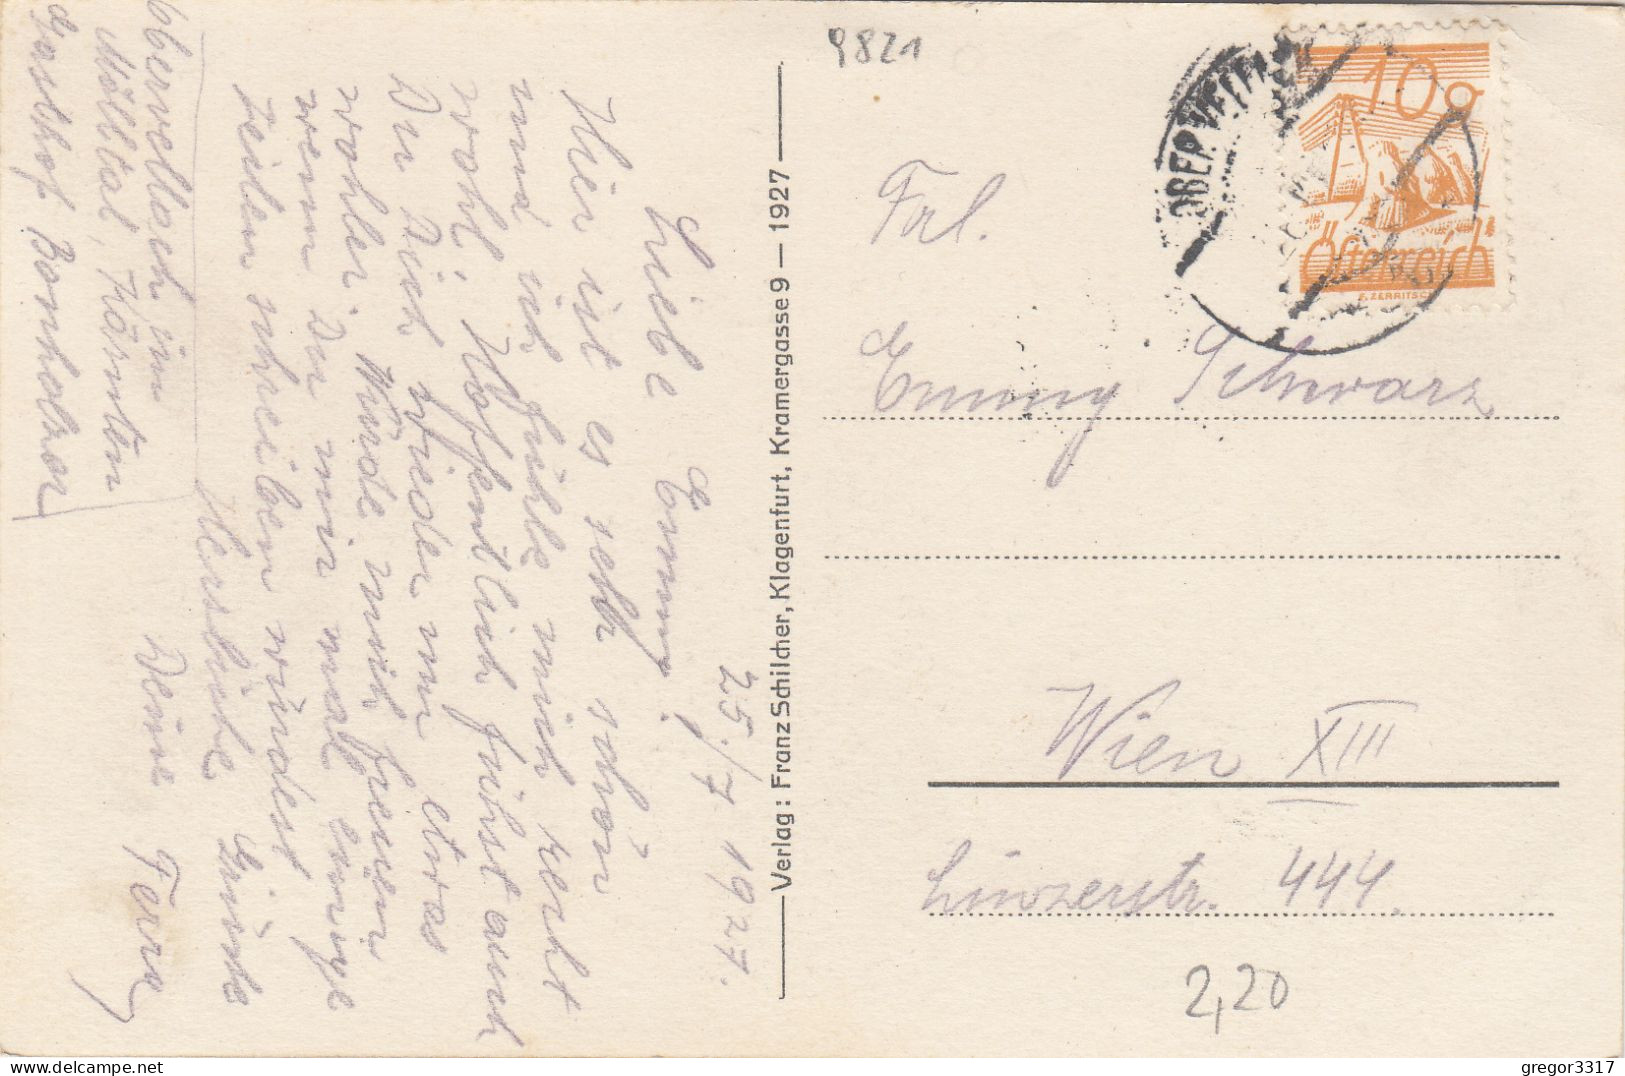 9821
10g
Österreich
F. ZERRITSCH
OBERVELLACH
25./7 1927.
Liebe Emmy!
Hier ist es sehr schön
und ich fühle mich recht
wohl. Hoffentlich fühlst auch
Du Dich wieder um etwas
wohler. Würde mich freuen
wenn Du mir mal einige
Zeilen schreiben würdest
Herzliche Grüße
Deine Ferry
Obervellach im
Mölltal, Kärnten
Gasthof
Verlag: Franz Schilcher, Klagenfurt, Kramergasse 9 — 1927
Frl.
Emmy Schwarz
Wien XIII
Linzerstr. 444.
2,20
gregor3317